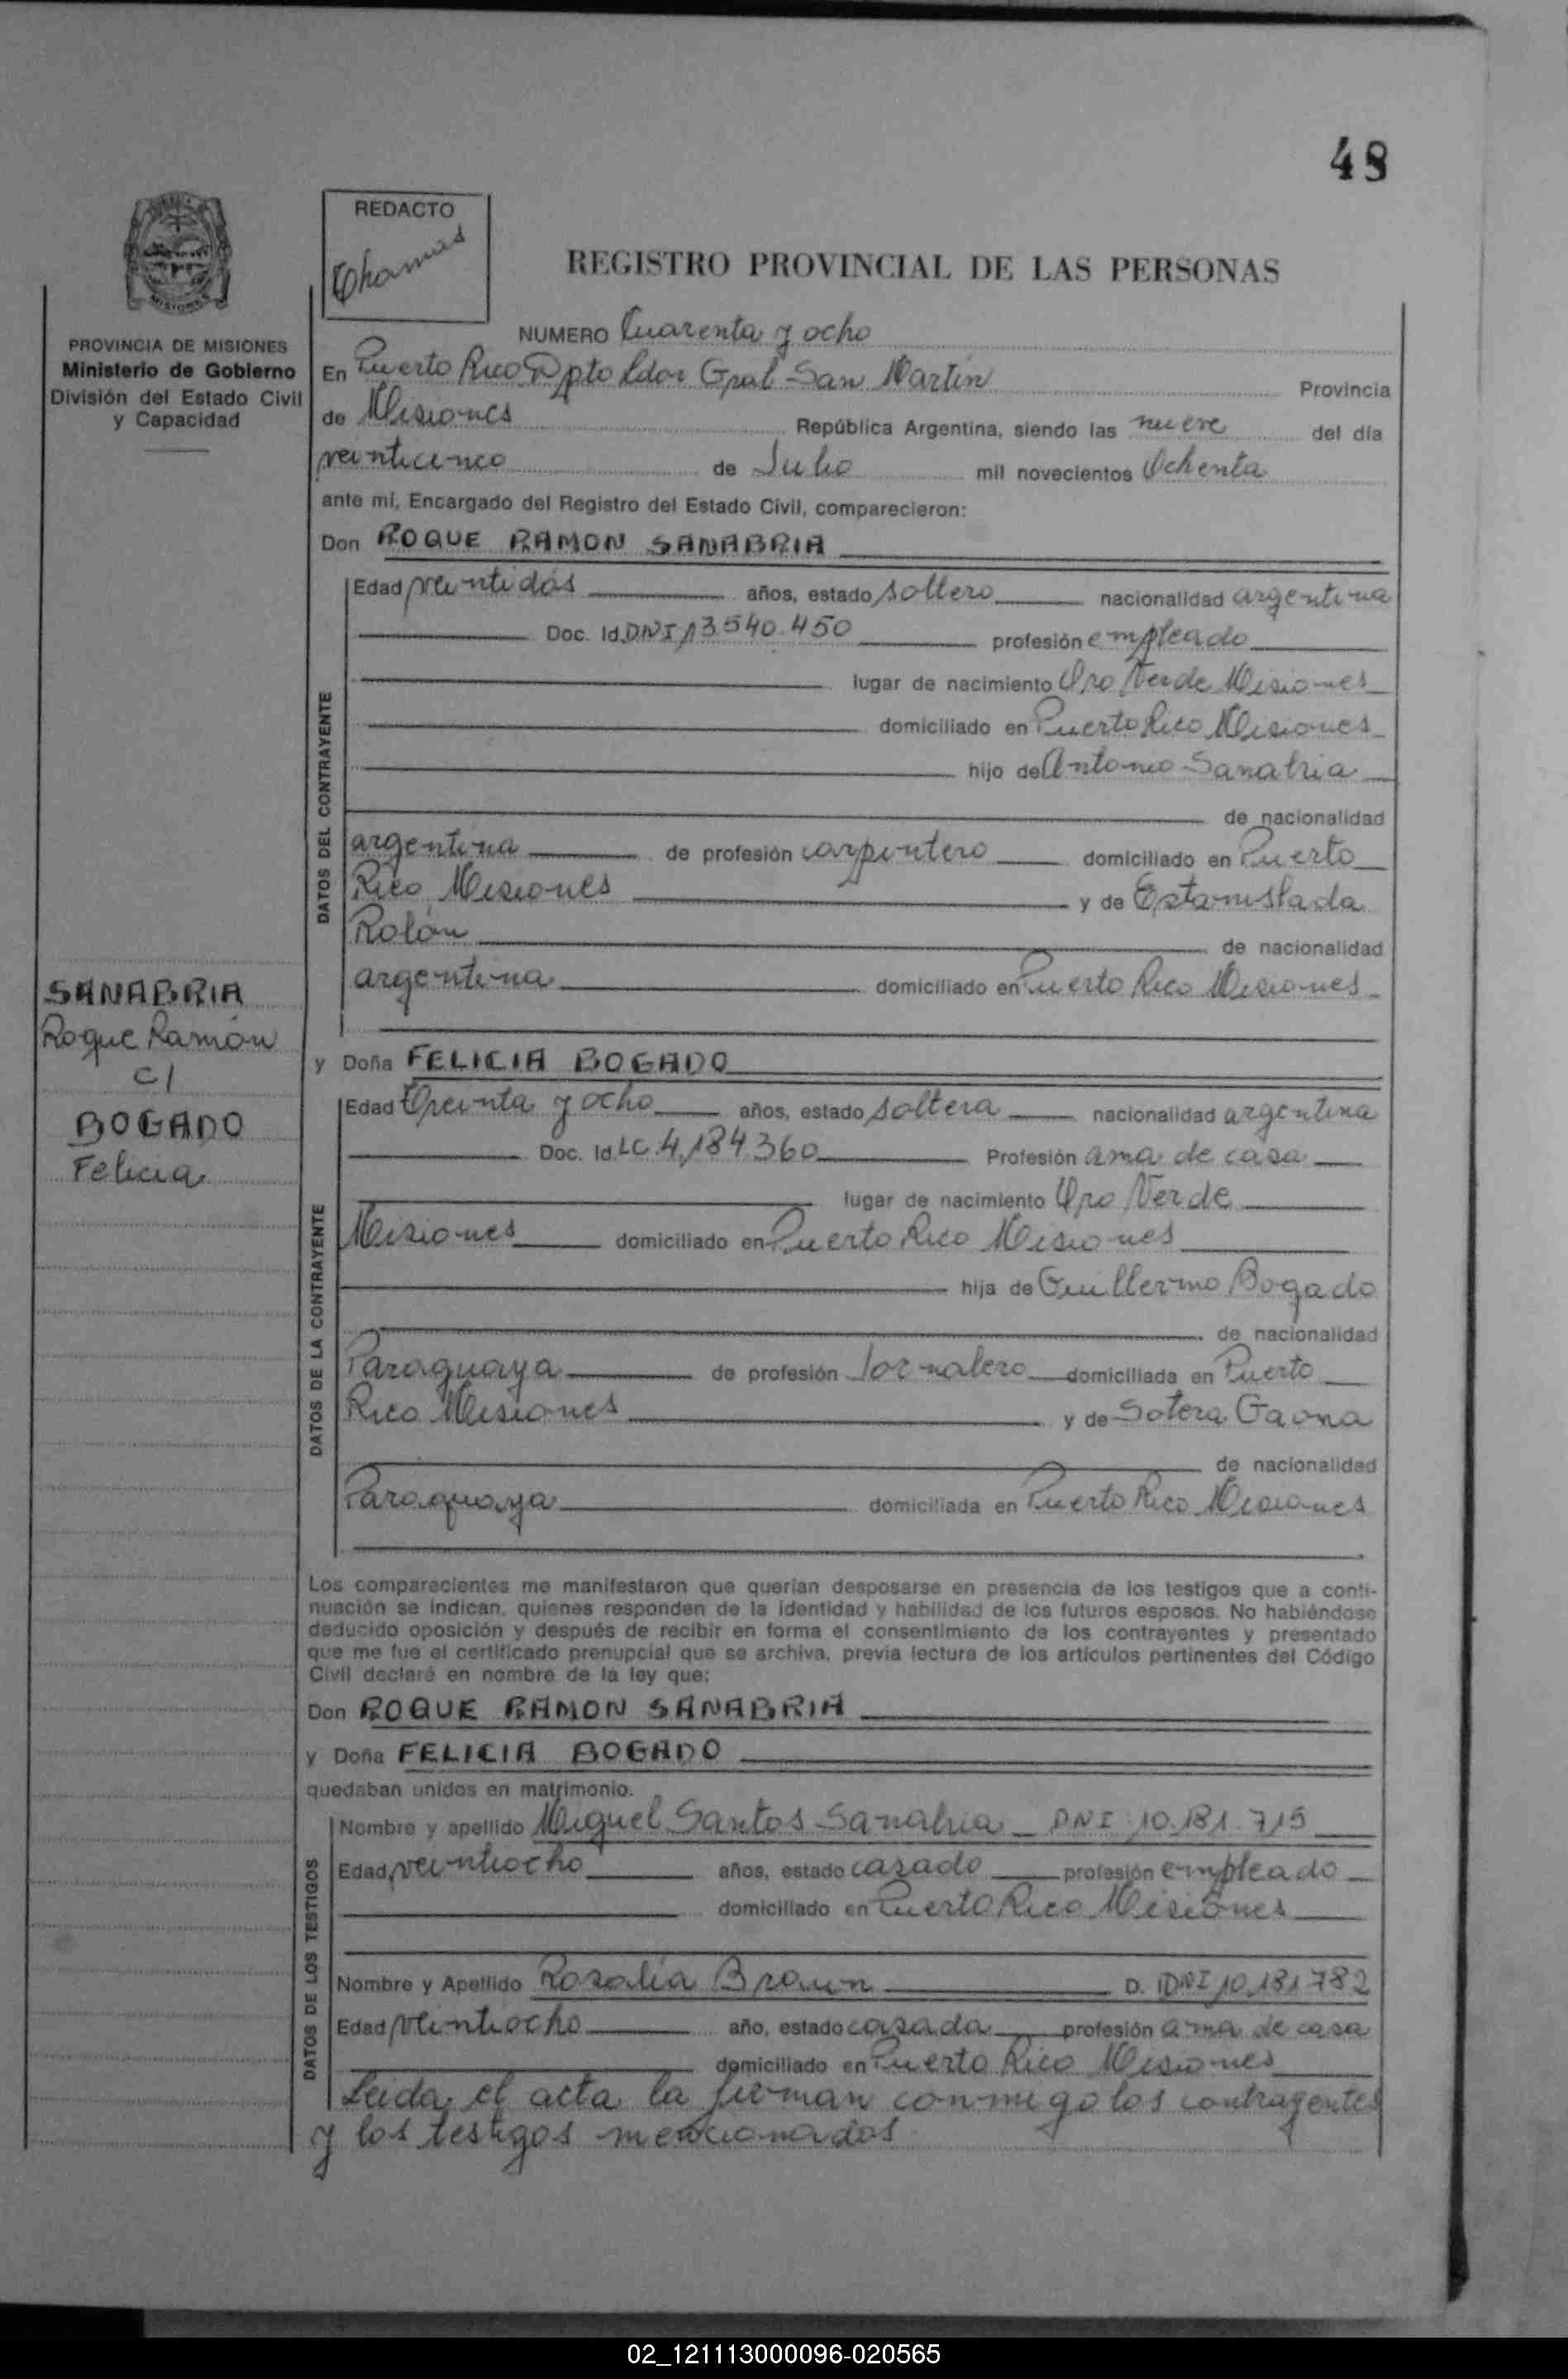 48
REDACTO
Chamas
REGISTRO PROVINCIAL DE LAS PERSONAS
PROVINCIA DE MISIONES
Ministerio de Gobierno
División del Estado Civil
y Capacidad
NUMERO Cuarenta y ocho
En Puerto Rico Dpto Ldor Gral San Martín Provincia
de Misiones República Argentina, siendo las nueve del día
veinticinco de Julio mil novecientos Ochenta
ante mí, Encargado del Registro del Estado Civil, comparecieron:
Don ROQUE RAMON SANABRIA
DATOS DEL CONTRAYENTE
Edad veintidos años, estado soltero nacionalidad argentina
Doc. Id. DNI 13.540.450 profesión empleado
lugar de nacimiento Oro Verde Misiones
domiciliado en Puerto Rico Misiones
hijo de Antonio Sanabria
de nacionalidad
argentina de profesión carpintero domiciliado en Puerto
Rico Misiones y de Estanislada
Rolón de nacionalidad
argentina domiciliado en Puerto Rico Misiones
SANABRIA
Roque Ramón
c/
BOGADO
Felicia
y Doña FELICIA BOGADO
DATOS DE LA CONTRAYENTE
Edad Treinta y ocho años, estado soltera nacionalidad argentina
Doc. Id. LC. 4.184.360 Profesión ama de casa
lugar de nacimiento Oro Verde
Misiones domiciliado en Puerto Rico Misiones
hija de Guillermo Bogado
de nacionalidad
Paraguaya de profesión Jornalero domiciliada en Puerto
Rico Misiones y de Sotera Gaona
de nacionalidad
Paraguaya domiciliada en Puerto Rico Misiones
Los comparecientes me manifestaron que querían desposarse en presencia de los testigos que a conti-
nuación se indican, quienes responden de la identidad y habilidad de los futuros esposos. No habiéndose
deducido oposición y después de recibir en forma el consentimiento de los contrayentes y presentado
que me fue el certificado prenupcial que se archiva, previa lectura de los artículos pertinentes del Código
Civil declaré en nombre de la ley que:
Don ROQUE RAMON SANABRIA
y Doña FELICIA BOGADO
quedaban unidos en matrimonio.
DATOS DE LOS TESTIGOS
Nombre y apellido Miguel Santos Sanabria DNI 10.181.715
Edad veintiocho años, estado casado profesión empleado
domiciliado en Puerto Rico Misiones
Nombre y Apellido Rosalía Braun D. DNI 10.181782
Edad veintiocho año, estado casada profesión ama de casa
domiciliado en Puerto Rico Misiones
Leida el acta la firman conmigo los contrayentes
y los testigos mencionados
02_121113000096-020565